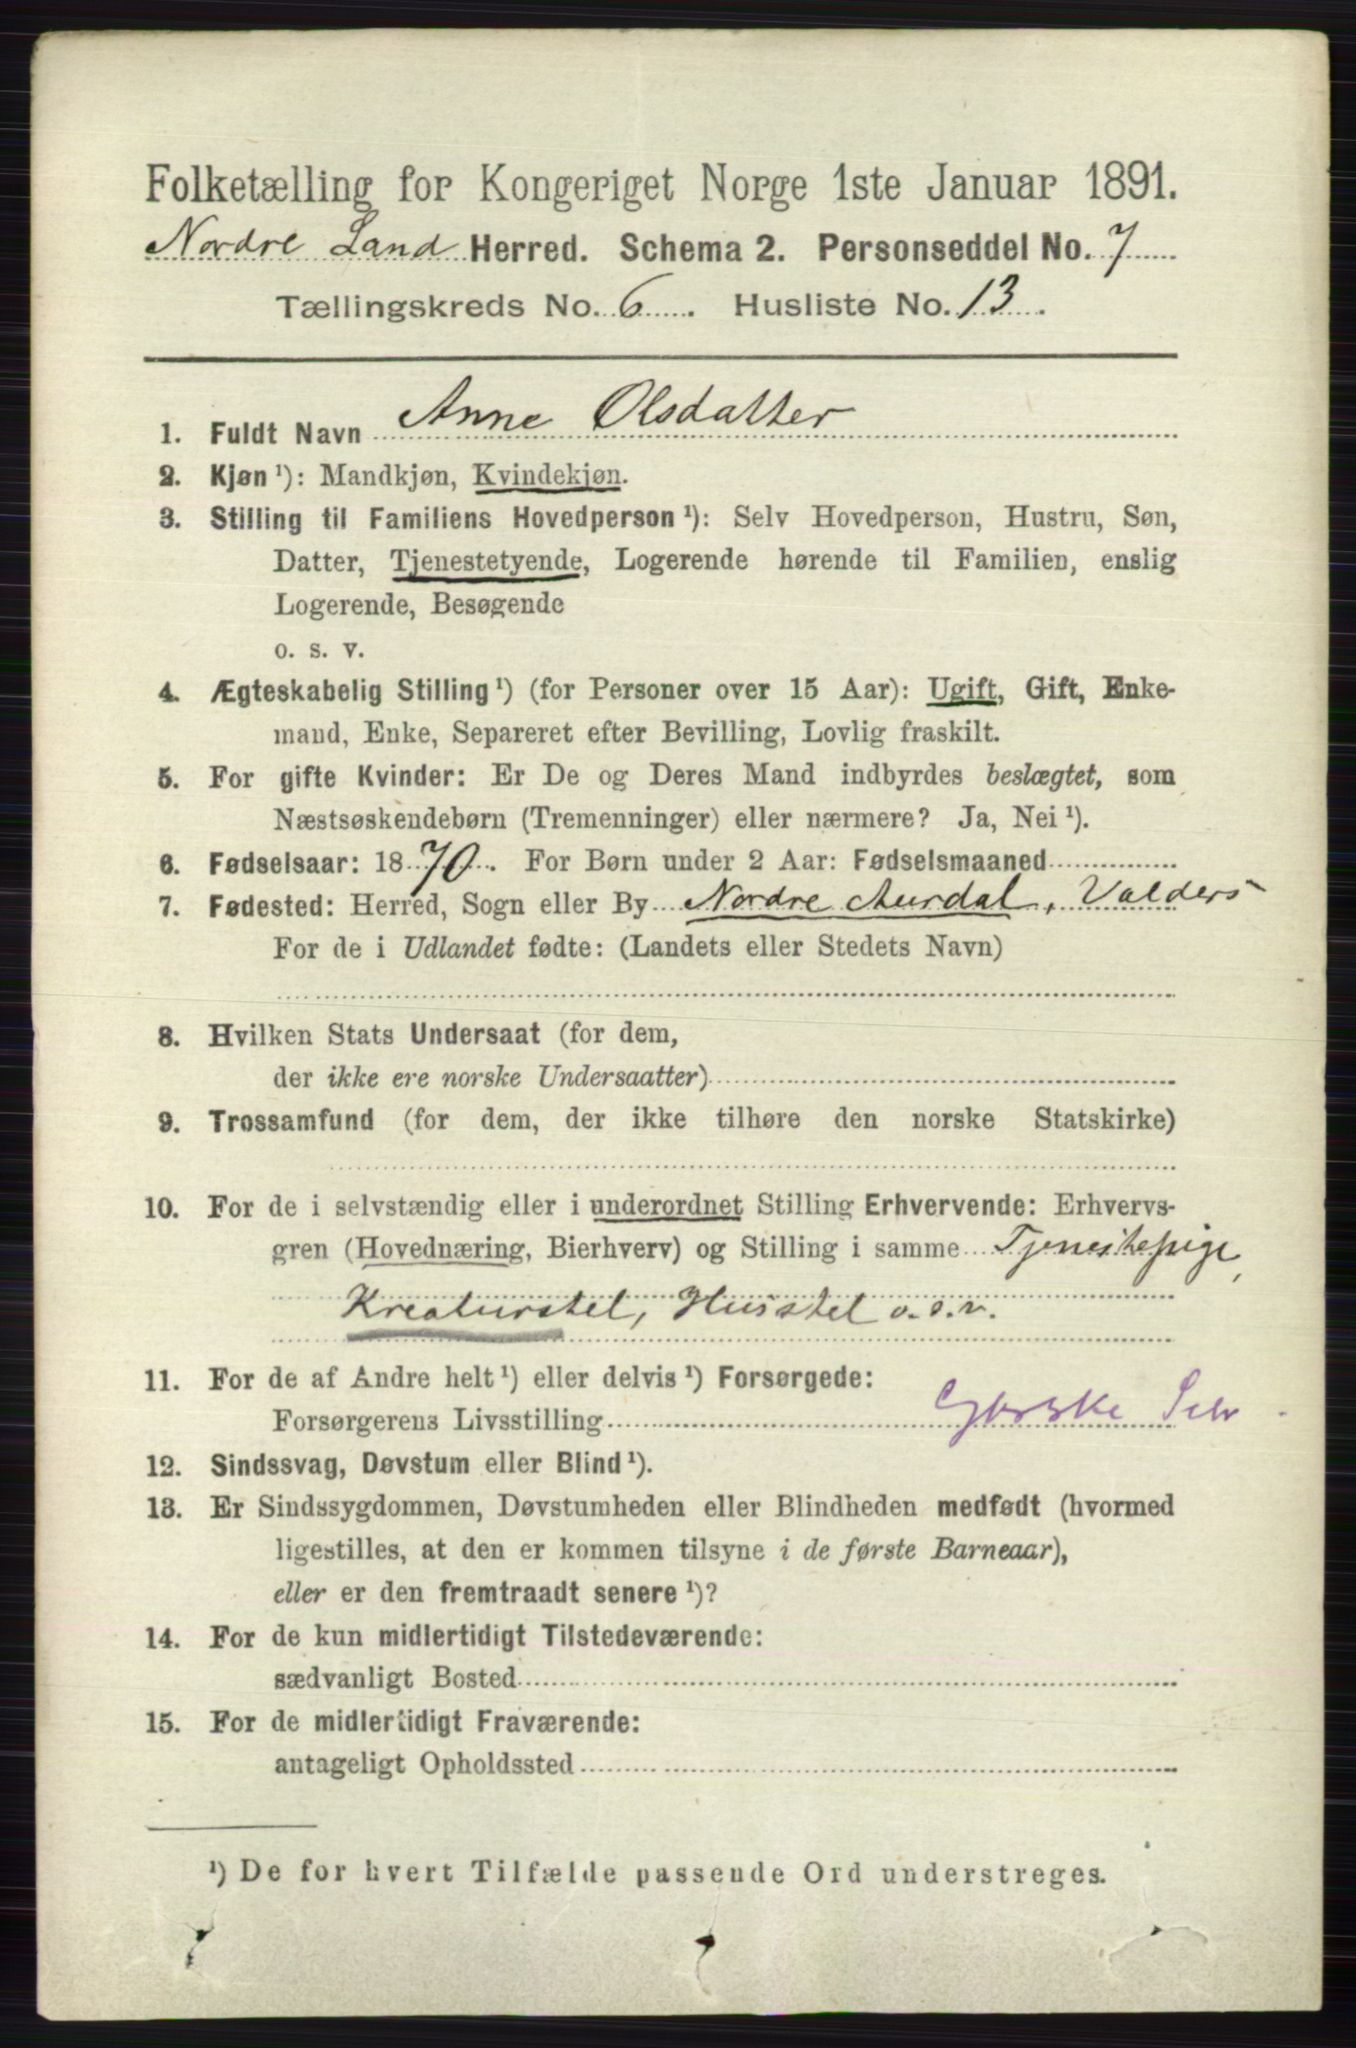 Folketælling for Kongeriget Norge 1ste Januar 1891.
Nordre Land Herred. Schema 2. Personseddel No. 7
Tællingskreds No. 6. Husliste No. 13.
1. Fuldt Navn Anne Olsdatter
2. Kjøn ¹): Mandkjøn, Kvindekjøn.
3. Stilling til Familiens Hovedperson ¹): Selv Hovedperson, Hustru, Søn,
Datter, Tjenestetyende, Logerende hørende til Familien, enslig
Logerende, Besøgende
o. s. v.
4. Ægteskabelig Stilling ¹) (for Personer over 15 Aar): Ugift, Gift, Enke-
mand, Enke, Separeret efter Bevilling, Lovlig fraskilt.
5. For gifte Kvinder: Er De og Deres Mand indbyrdes beslægtet, som
Næstsøskendebørn (Tremenninger) eller nærmere? Ja, Nei ¹).
6. Fødselsaar: 1870. For Børn under 2 Aar: Fødselsmaaned
7. Fødested: Herred, Sogn eller By Nordre Aurdal, Valders
For de i Udlandet fødte: (Landets eller Stedets Navn)
8. Hvilken Stats Undersaat (for dem,
der ikke ere norske Undersaatter)
9. Trossamfund (for dem, der ikke tilhøre den norske Statskirke)
10. For de i selvstændig eller i underordnet Stilling Erhvervende: Erhvervs-
gren (Hovednæring, Bierhverv) og Stilling i samme Tjenestepige,
Kreaturstel, Husstel o.s.v.
11. For de af Andre helt ¹) eller delvis ¹) Forsørgede:
Forsørgerens Livsstilling
12. Sindssvag, Døvstum eller Blind ¹).
13. Er Sindssygdommen, Døvstumheden eller Blindheden medfødt (hvormed
ligestilles, at den er kommen tilsyne i de første Barneaar),
eller er den fremtraadt senere ¹)?
14. For de kun midlertidigt Tilstedeværende:
sædvanligt Bosted
15. For de midlertidigt Fraværende:
antageligt Opholdssted
¹) De for hvert Tilfælde passende Ord understreges.